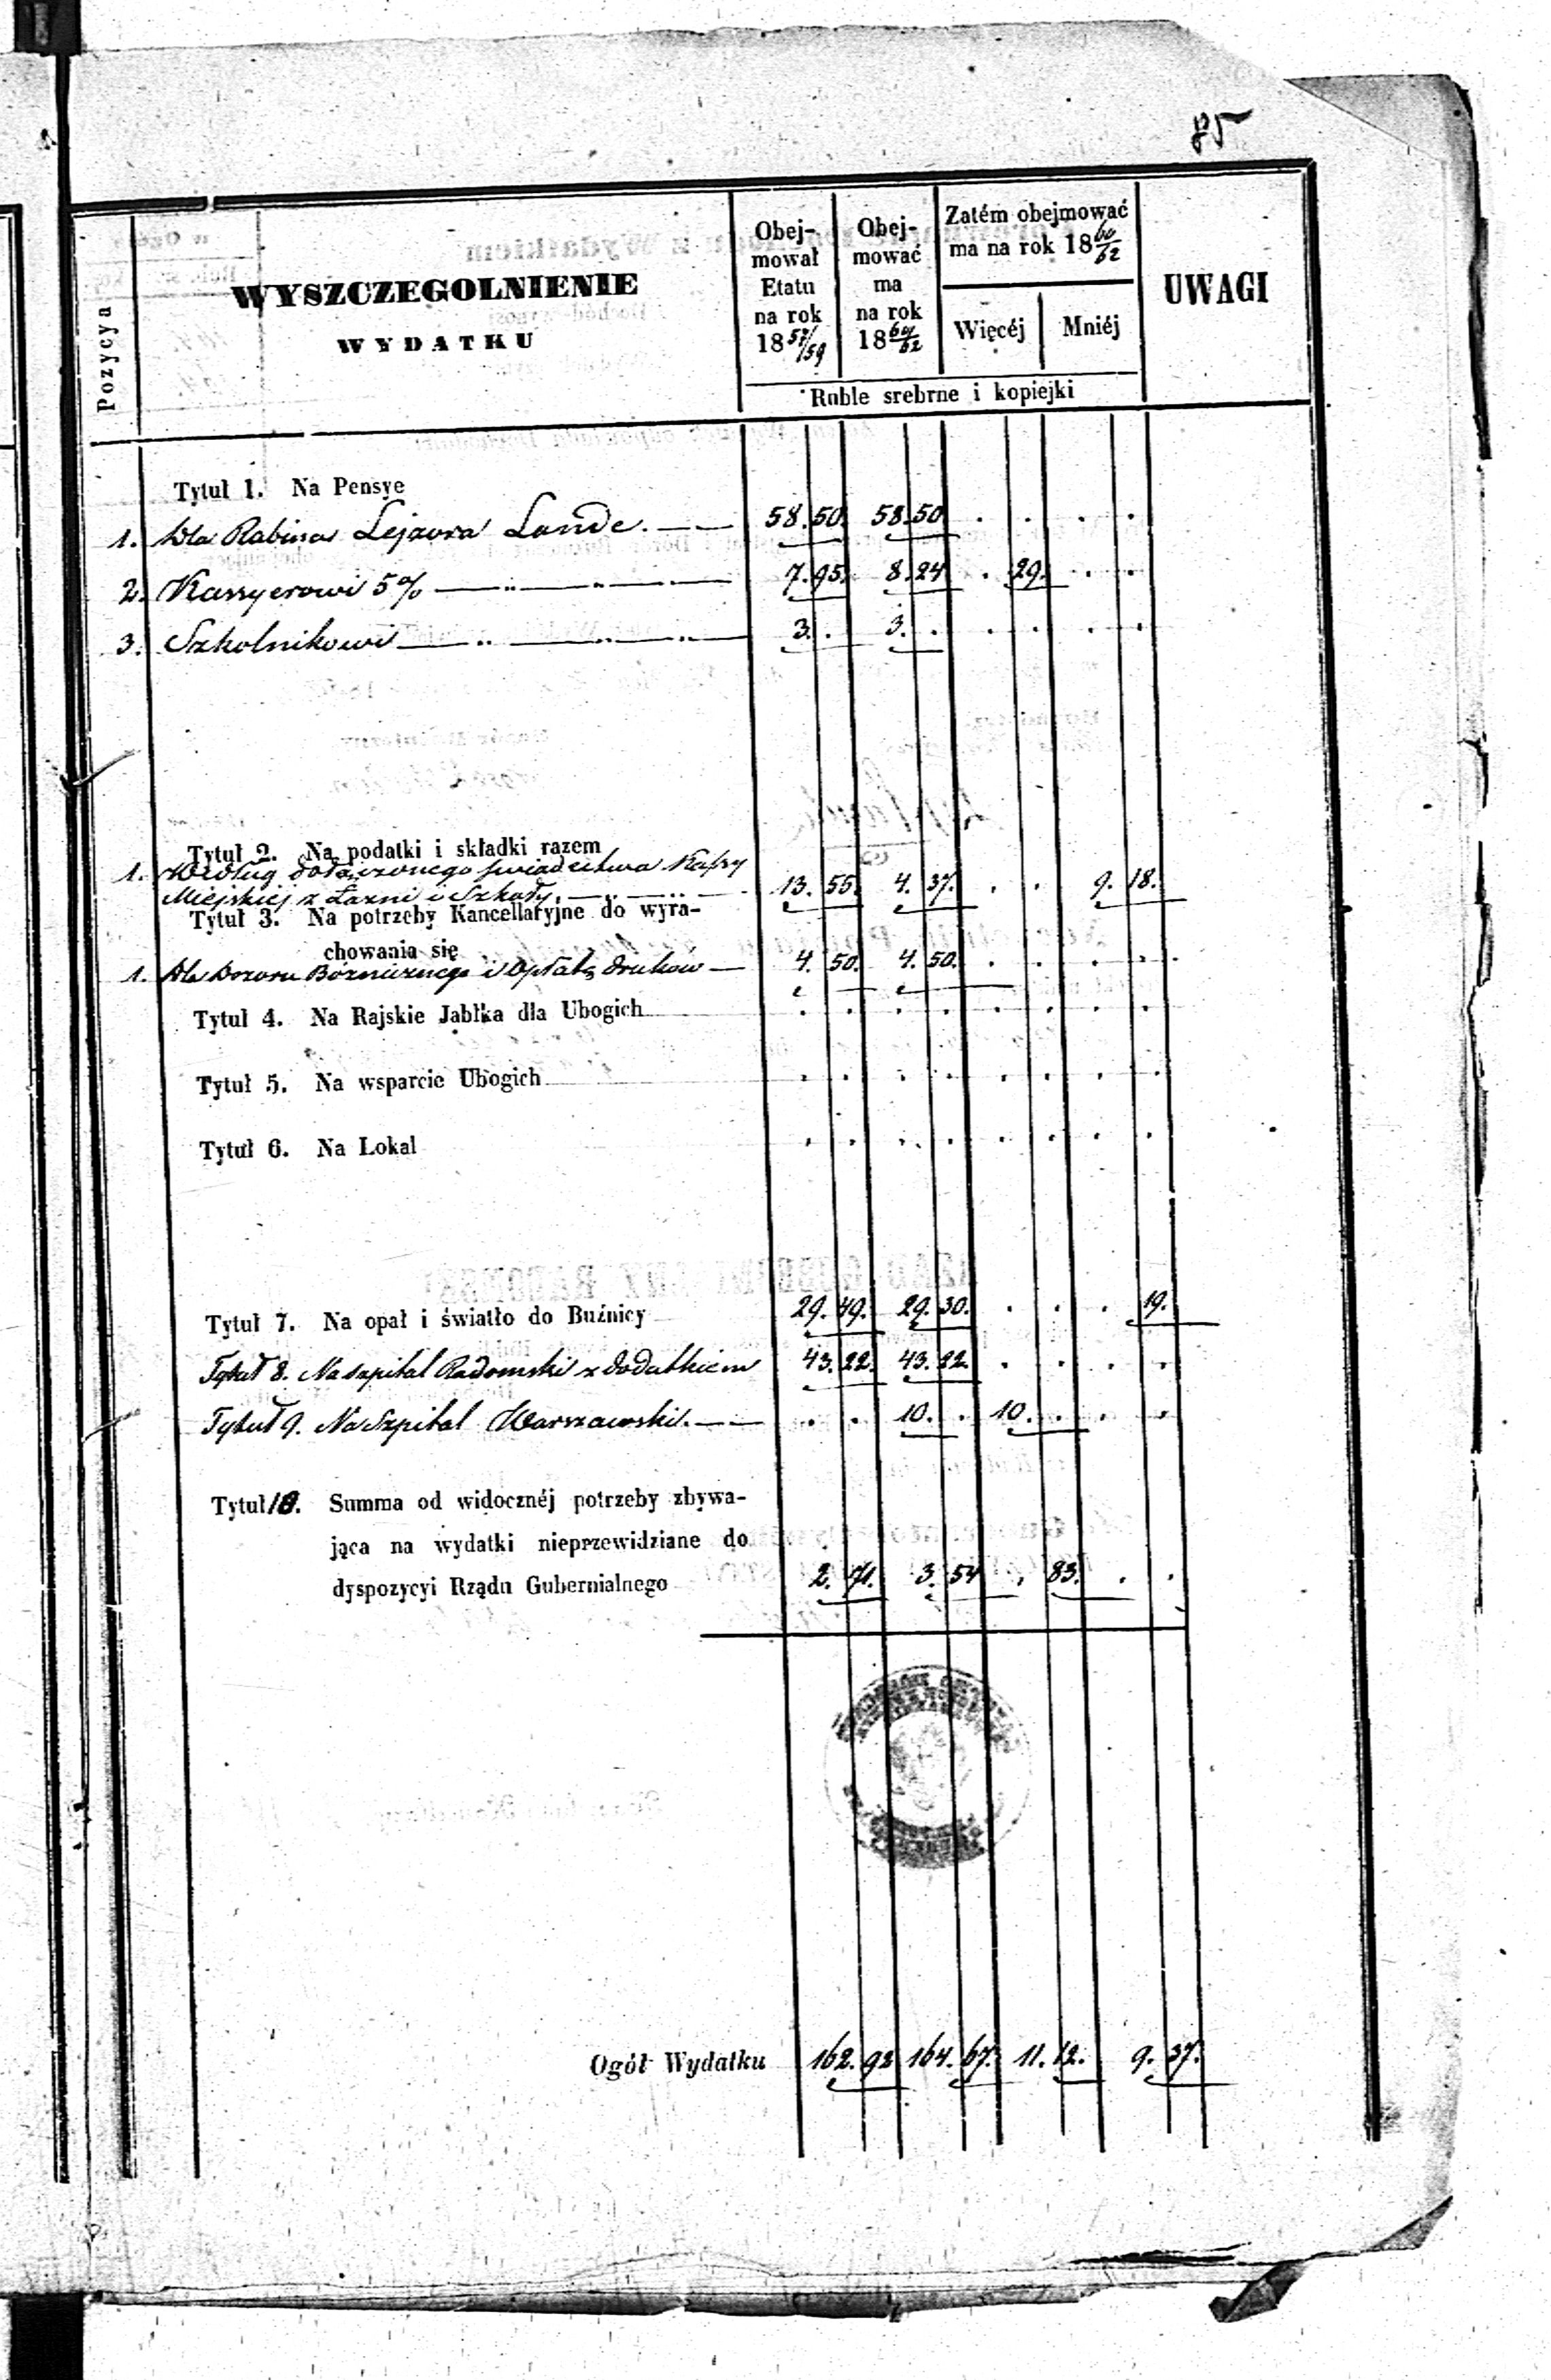 85
Pozycya
WYSZCZEGOLNIENIE
WYDATKU
Obej-
mował
Etatu
na rok
18 57/59
Obej-
mować
ma
na rok
18 60/62
Zatém obejmować
ma na rok 18 60/62
Więcéj Mniéj
UWAGI
Ruble srebrne i kopiejki
Tytuł 1. Na Pensye
1. Dla Rabina Lejzora Lande. 58. 50. 58. 50 . . . .
2. Kassyerowi 5% 7. 95. 8. 24 . 29. . .
3. Szkolnikowi 3. . 3. . . . . .
Tytuł 2. Na podatki i składki razem
1. Według dołączonego swiadectwa Kassy
Miejskiej z Łazni i Szkoły. 13. 55. 4. 37. . . 9. 18.
Tytuł 3. Na potrzeby Kancellaryjne do wyra-
chowania się
1. Dla Dozoru Bóżniczego i Opłatę druków 4. 50. 4. 50. . . . .
Tytuł 4. Na Rajskie Jabłka dla Ubogich . . . . . . . .
Tytuł 5. Na wsparcie Ubogich . . . . . . . .
Tytuł 6. Na Lokal . . . . . . . .
Tytuł 7. Na opał i światło do Buźnicy 29. 49. 29. 30. . . . 19.
Tytuł 8. Na szpital Radomski z dodatkiem 43. 22. 43. 22. . . . .
Tytuł 9. Na Szpital Warszawski. . . 10. . 10. . . .
Tytuł 10. Summa od widocznéj potrzeby zbywa-
jąca na wydatki nieprzewidziane do
dyspozycyi Rządu Gubernialnego 2. 71. 3. 54 . 83. . .
Ogół Wydatku 162. 92 164. 67. 11. 12. 9. 37.